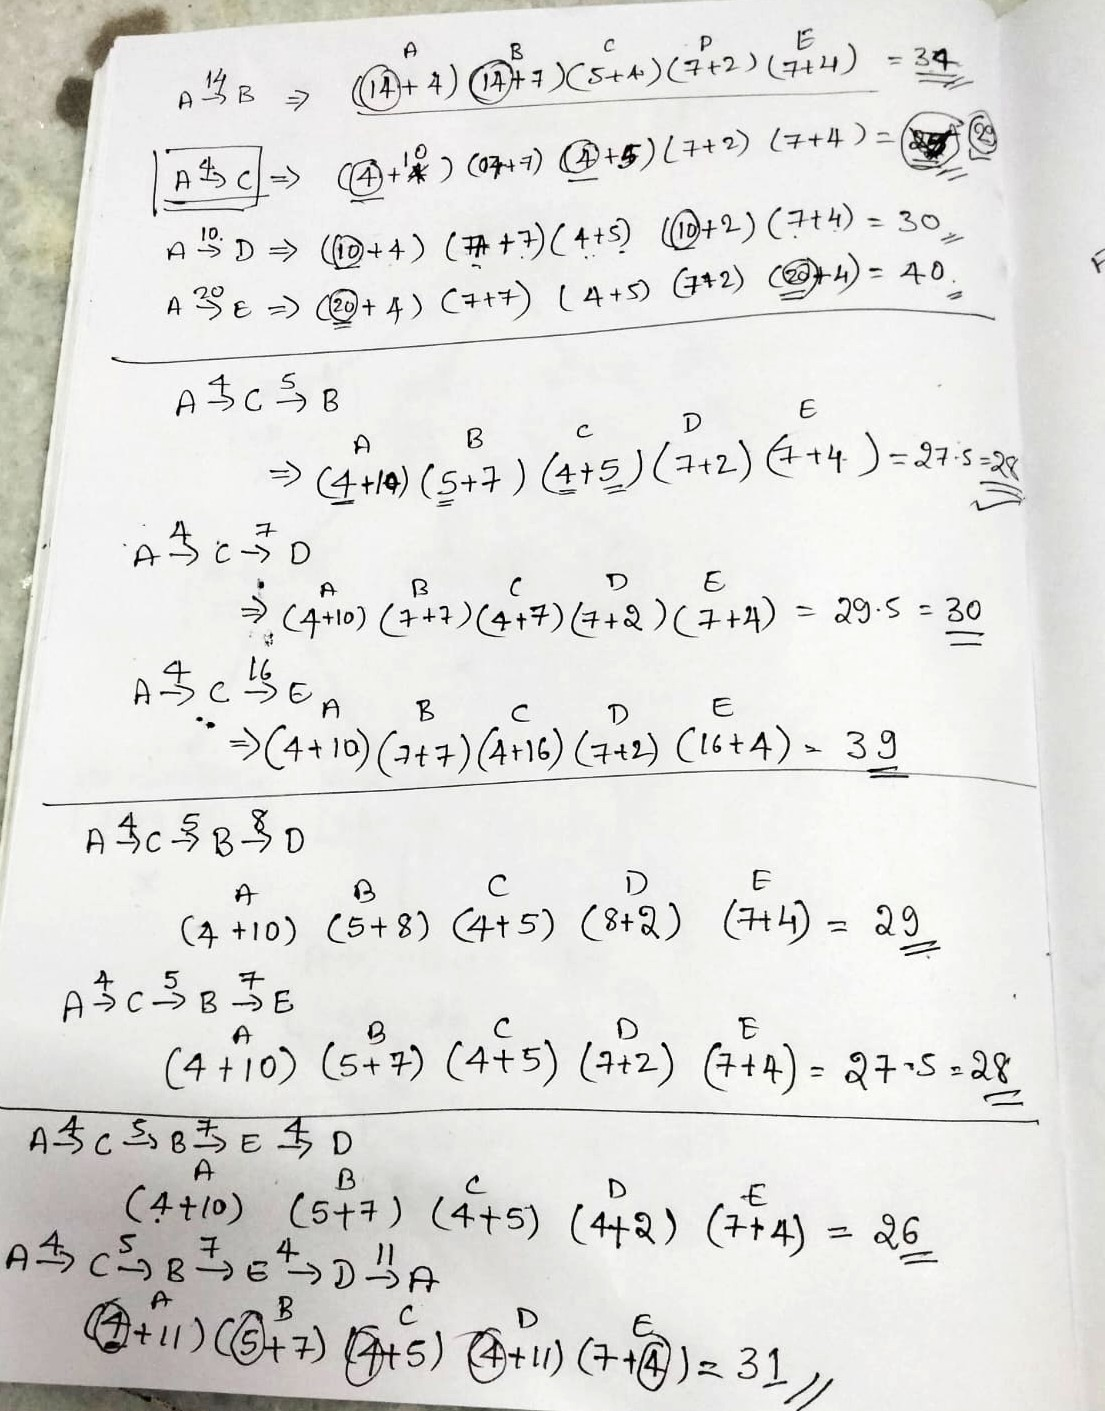 A B C D E
A 14→ B ⇒ (14+4) (14+7) (5+4) (7+2) (7+4) = 34
A 4→ C ⇒ (4+10) (7+7) (4+5) (7+2) (7+4) = 29
A 10→ D ⇒ (10+4) (7+7) (4+5) (10+2) (7+4) = 30
A 20→ E ⇒ (20+4) (7+7) (4+5) (7+2) (20+4) = 40.
A 4→ C 5→ B
A B C D E
⇒ (4+10) (5+7) (4+5) (7+2) (7+4) = 27.5 = 28
A 4→ C 7→ D
A B C D E
⇒ (4+10) (7+7) (4+7) (7+2) (7+4) = 29.5 = 30
A 4→ C 16→ E
A B C D E
⇒ (4+10) (7+7) (4+16) (7+2) (16+4) = 39
A 4→ C 5→ B 8→ D
A B C D E
(4+10) (5+8) (4+5) (8+2) (7+4) = 29
A 4→ C 5→ B 7→ E
A B C D E
(4+10) (5+7) (4+5) (7+2) (7+4) = 27.5 = 28
A 4→ C 5→ B 7→ E 4→ D
A B C D E
(4+10) (5+7) (4+5) (4+2) (7+4) = 26
A 4→ C 5→ B 7→ E 4→ D 11→ A
A B C D E
(4+11) (5+7) (4+5) (4+11) (7+4) = 31